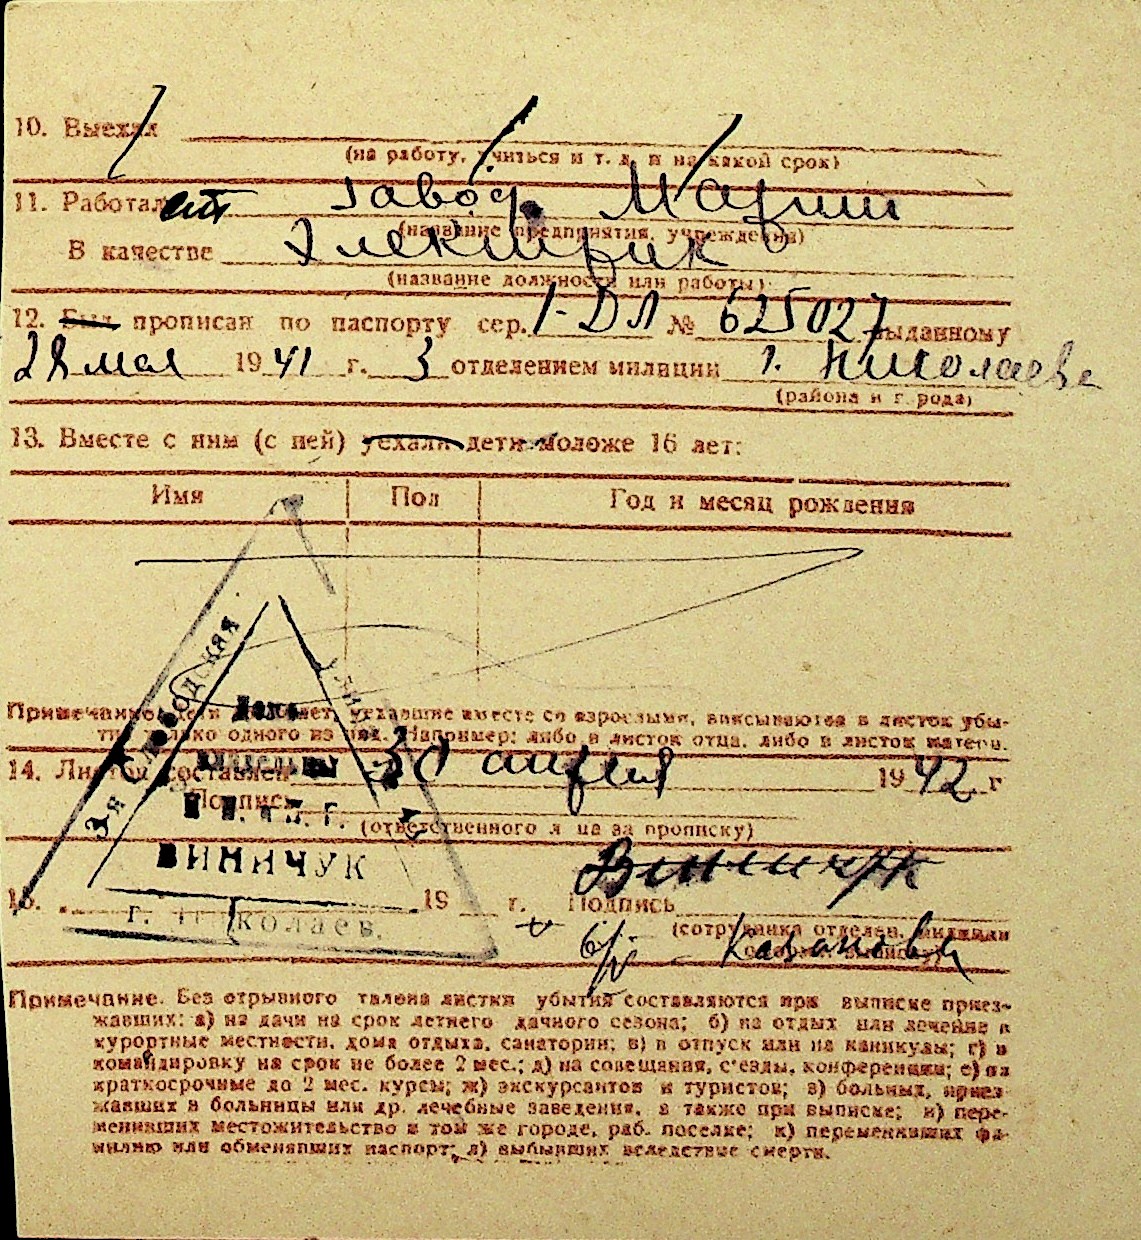 10. Выехал
(на работу, учиться и т. д. и на какой срок)
11. Работает завод Марти
(название предприятия, учреждения)
В качестве Электрик
(название должности или работы)
12. Был прописан по паспорту сер. 1-ДЛ № 625027 выданному
28 мая 1941 г. 3 отделением милиции г. Николаева
(района и города)
13. Вместе с ним (с ней) уехали дети моложе 16 лет:
Имя Пол Год и месяц рождения
Примечание: дети до лет, уехавшие вместе со взрослыми, вписываются в листок убы-
ти только одного из них. Например: либо в листок отца, либо в листок матери.
14. Листок составлен 30 апреля 1942 г
Подпись
(ответственного лица за прописку)
Виничук
15. 19 г. Подпись
(сотрудника отделен. милиции
б/п - Казановъ
3-я Слободская
улица
ВИНИЧУК
г. Николаев.
Примечание. Без отрывного талона листки убытия составляются при выписке приез-
жавших: а) на дачи на срок летнего дачного сезона; б) на отдых или лечение в
курортные местности, дома отдыха, санатории; в) в отпуск или на каникулы; г) в
командировку на срок не более 2 мес.; д) на совещания, с'езды, конференции; е) на
краткосрочные до 2 мес. курсы; ж) экскурсантов и туристов; з) больных, приез-
жавших в больницы или др. лечебные заведения, а также при выписке; и) пере-
менивших местожительство в том же городе, раб. поселке; к) переменивших фа-
милию или обменявших паспорт; л) выбывших вследствие смерти.